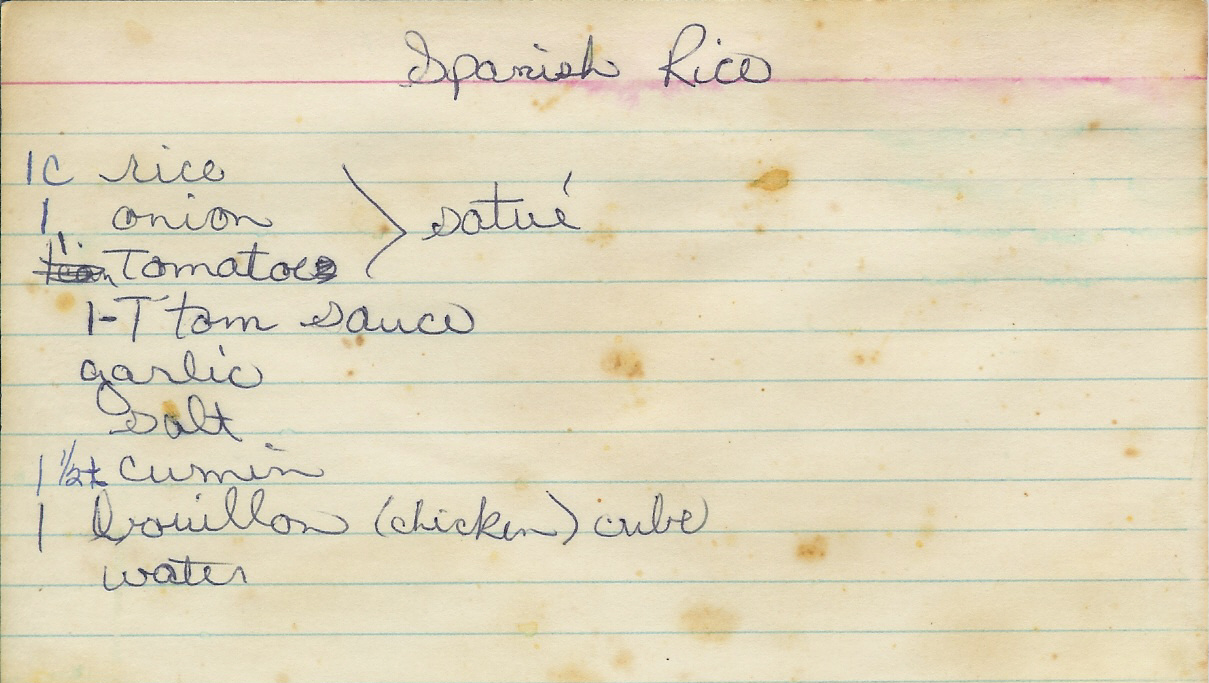 Spanish Rice
1C rice
1 onion
Tomatoes
satué
1-T tom sauce
garlic
salt
1 1/2t cumin
1 bouillon (chicken) cube
water